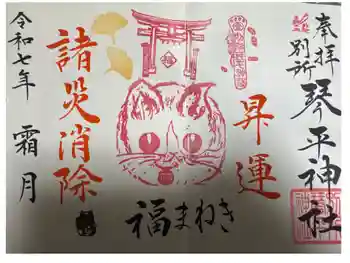 奉拝
別所
琴平神社
昇運
福まねき
諸災消除
令和七年
霜月